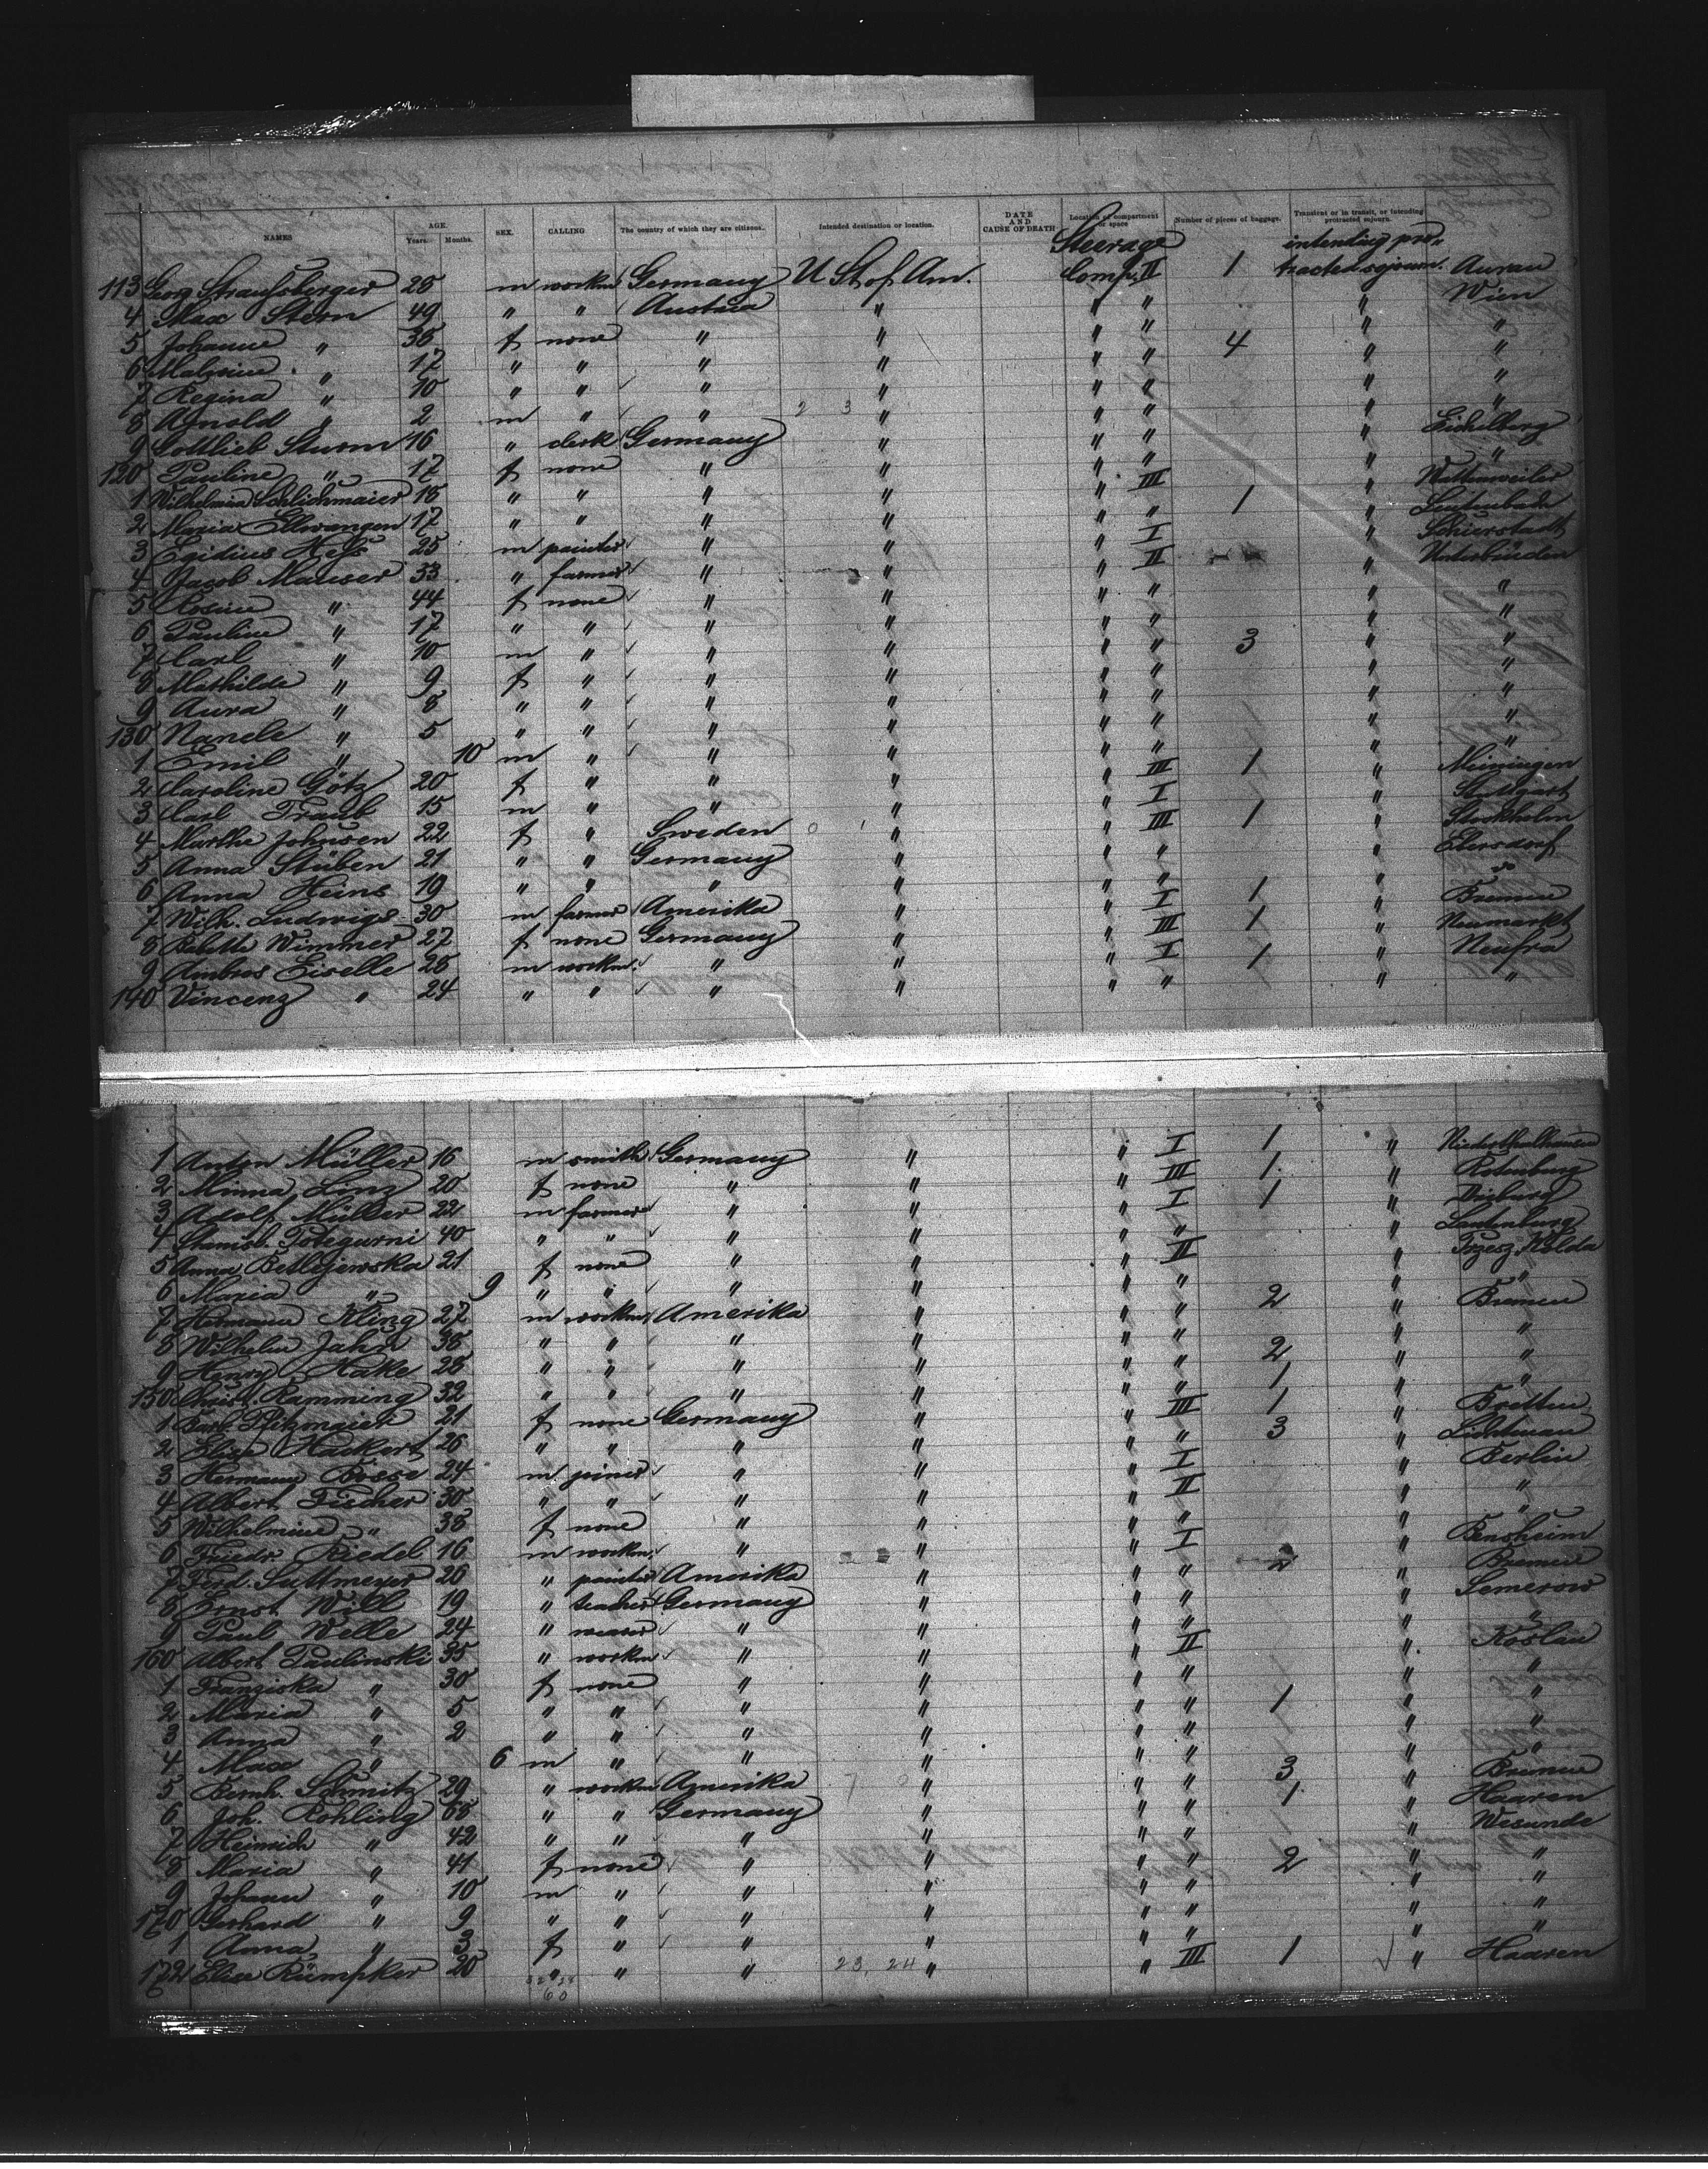 NAMES AGE. Years. Months. SEX. CALLING The country of which they are citizens. Intended destination or location. DATE AND CAUSE OF DEATH Location of compartment or space Number of pieces of baggage. Transient or in transit, or intending protracted sojourn.
Steerage intending pro-
113 Georg Straußberger 25 m workm Germany U St of Am. Comp. II 1 tracted sojourn. Aurau
4 Max Stern 49 " " Austria " " " " Wien
5 Johanne " 36 f none " " " " " "
6 Malvine " 17 " " " " " " 4 " "
7 Regina " 10 " " " " " " " "
8 Arnold " 2 m " " " " " " "
9 Gottlieb Sturm 16 " clerk Germany " " " " Eichelberg
120 Pauline " 17 f none " " " " " "
1 Wilhelmia Schlichmaier 18 " " " " " III " Wattenweiler
2 Maria Ellwangen 17 " " " " " " 1 " Leutenbach
3 Egidius Heß 25 m painter " " " I " Schierstadt
4 Jacob Mauser 33 " farmer " " " II "
5 Rosine " 44 f none " " " " " "
6 Pauline " 17 " " " " " " " "
7 Carl " 10 m " " " " " 3 " "
8 Mathilde " 9 f " " " " " " "
9 Aura " 8 " " " " " " " "
130 Nanele " 5 " " " " " " " "
1 Emil " 10 m " " " " " " "
2 Caroline Götz 20 f " " " " III 1 " Meiningen
3 Carl Traub 15 m " " " " I " Stuttgart
4 Martha Johnsen 22 f " Sweden " " III 1 " Stockholm
5 Anna Stüben 21 " " Germany " " " " Ebersdorf
6 Anna Heins 19 " " " " " " 1 " do
7 Wilh. Ludwigs 30 m farmer Amerika " " I 1 " Bremen
8 Babette Wimmer 27 f none Germany " " III 1 " Neumarkt
9 Ambros Eiselle 28 m workm. " " " I 1 " Neufra
140 Vincenz " 24 " " " " " " " "
1 Anton Müller 16 m smith Germany " " I 1 "
2 Minna Linz 20 f none " " " III 1 " Rotenburg
3 Adolf Müller 22 m farmer " " " I 1 " Dieburg
4 Stanisl. Potegurni 40 " " " " " " " Lautenburg
5 Anna Betlejewska 21 f none " " " II "
6 Maria " 9 " " " " " " " "
7 Hermann Kling 27 m workm Amerika " " " 2 " Bremen
8 Wilhelm Jahn 38 " " " " " " " "
9 Henry Hake 28 " " " " " " 2 " "
150 Christ. Ramming 32 " " " " " " 1 " "
1 Barb. Pfitzmaier 21 f none Germany " " III 1 " Bretten
2 Elisa Hackert 26 " " " " " " 3 " Lichtenau
3 Hermann Bosse 24 m joiner " " " I " Berlin
4 Albert Fischer 30 " " " " " II " "
5 Wilhelmine " 38 f none " " " " " "
6 Friedr. Riedel 16 m workm. " " " I " Bensheim
7 Ferd. Suttmeyer 26 " painter Amerika " " " 2 " Bremen
8 Ernst Will 19 " teacher Germany " " " " Semerow
9 Paul Welle 24 " weaver " " " " " "
160 Albert Paulinski 35 " workm " " " II " Koslau
1 Franziska " 30 f none " " " " " "
2 Maria " 5 " " " " " " 1 " "
3 Anna " 2 " " " " " " " "
4 Max " 6 m " " " " " " "
5 Bernh. Schmitz 29 " workm Amerika " " " 3 " Bremen
6 Joh. Rohling 68 " " Germany " " " 1 " Haaren
7 Heinrich " 42 " " " " " " " Wesunde
8 Maria " 41 f none " " " " 2 " "
9 Johann " 10 m " " " " " " "
170 Gerhard " 9 " " " " " " " "
1 Anna " 3 f " " " " " " "
172 Elise Rümpker 20 " " " 23 24 " " III 1 " Haaren
60